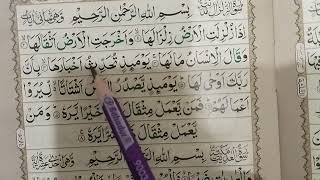 بِسْمِ اللهِ الرَّحْمٰنِ الرَّحِيْمِ
اِذَا زُلْزِلَتِ الْاَرْضُ زِلْزَالَهَا وَاَخْرَجَتِ الْاَرْضُ اَثْقَالَهَا
وَقَالَ الْاِنْسَانُ مَا لَهَا يَوْمَئِذٍ تُحَدِّثُ اَخْبَارَهَا بِاَنَّ
رَبَّكَ اَوْحٰى لَهَا يَوْمَئِذٍ يَّصْدُرُ النَّاسُ اَشْتَاتًا لِّيُرَوْا
اَعْمَالَهُمْ فَمَنْ يَّعْمَلْ مِثْقَالَ ذَرَّةٍ خَيْرًا يَّرَهٗ وَمَنْ
يَّعْمَلْ مِثْقَالَ ذَرَّةٍ شَرًّا يَّرَهٗ
بِسْمِ اللهِ الرَّحْمٰنِ الرَّحِيْمِ